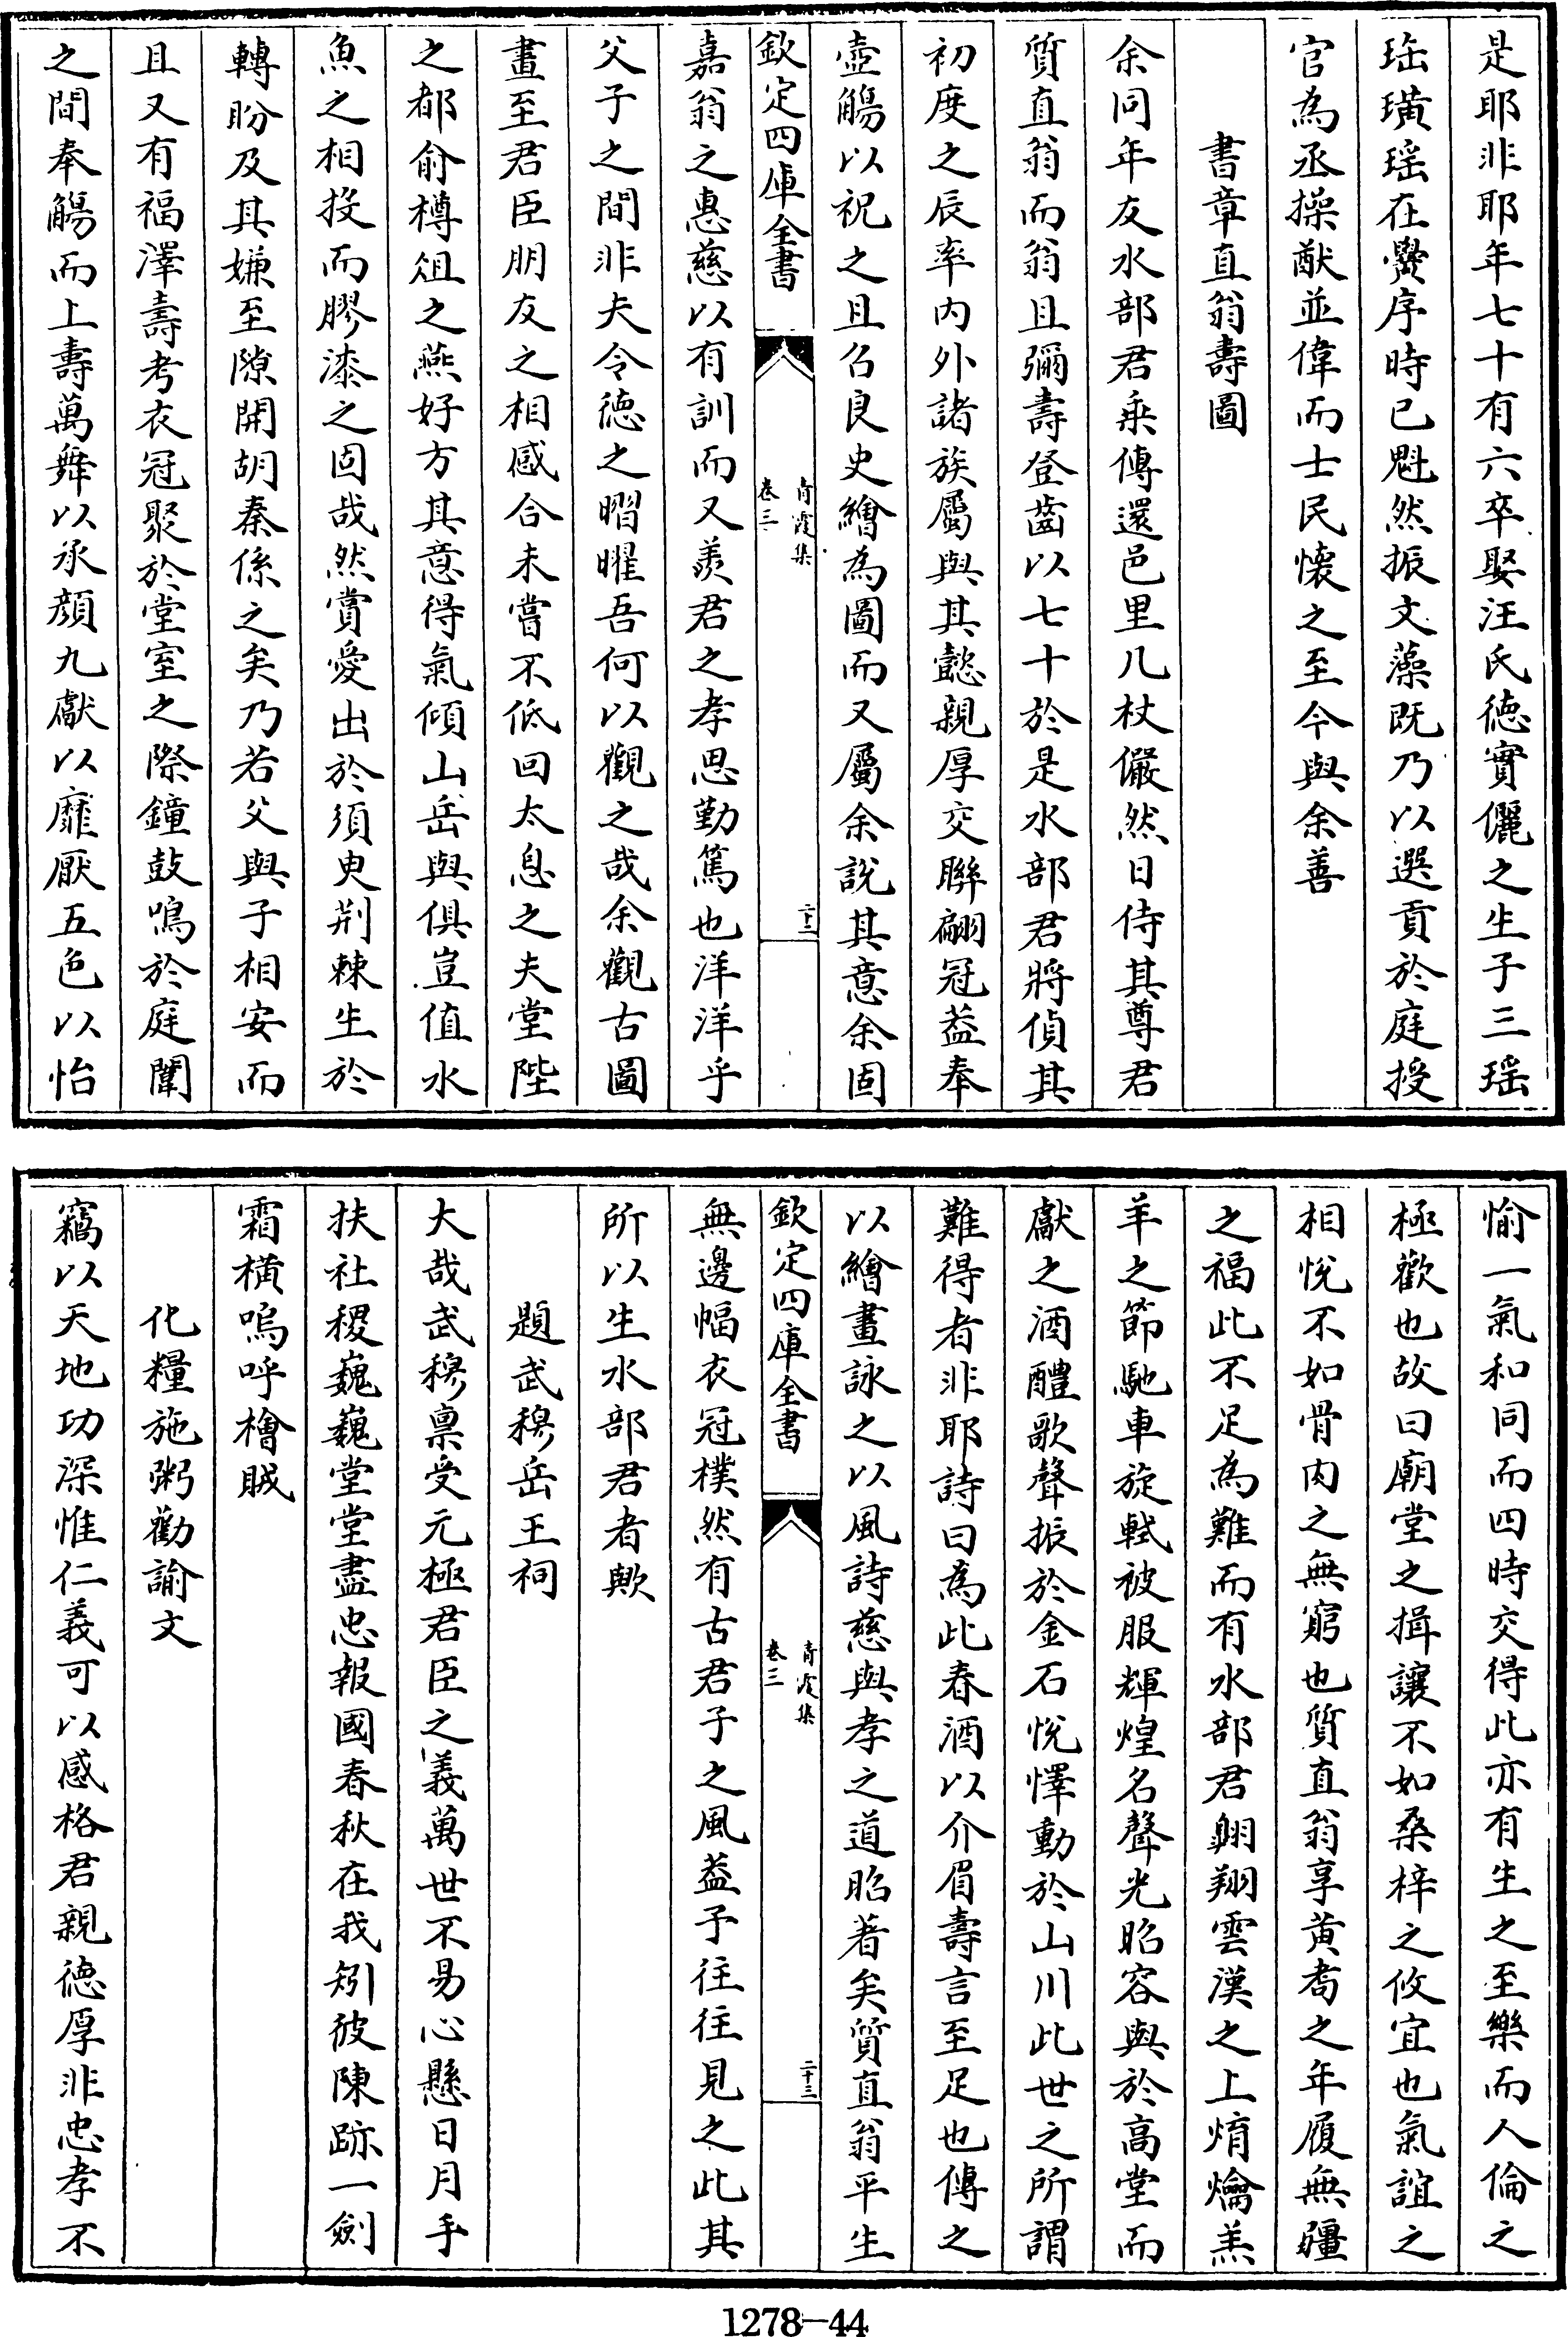 是耶非耶年七十有六卒娶汪氏徳實儷之生子三瑶
珤璜瑶在黌序時已魁然振文藻既乃以選貢於庭授
官為丞操猷並偉而士民懷之至今與余善
書章直翁壽圖
余同年友水部君乘傳還邑里几杖儼然日侍其尊君
質直翁而翁且彌壽登齒以七十於是水部君將偵其
初度之辰率内外諸族屬與其懿親厚交聯翩冠葢奉
壺觴以祝之且召良史繪為圖而又屬余説其意余固
欽定四庫全書
青霞集
卷三
二十二
嘉翁之惠慈以有訓而又羨君之孝思勤篤也洋洋乎
父子之間非夫令徳之熠曜吾何以觀之哉余觀古圖
畫至君臣朋友之相感合未嘗不低回太息之夫堂陛
之都俞樽俎之燕好方其意得氣傾山岳與俱豈值水
魚之相投而膠漆之固哉然賞愛出於須臾荆棘生於
轉盼及其嫌至隙開胡秦係之矣乃若父與子相安而
且又有福澤壽考衣冠聚於堂室之際鐘鼓鳴於庭闈
之間奉觴而上壽萬舞以承顔九獻以靡厭五色以怡
愉一氣和同而四時交得此亦有生之至樂而人倫之
極歡也故曰廟堂之揖讓不如桑梓之攸宜也氣誼之
相悅不如骨肉之無窮也質直翁享黄耉之年履無疆
之福此不足為難而有水部君翺翔雲漢之上焴爚羔
羊之節馳車旋軾被服輝煌名聲光昭容與於高堂而
獻之酒醴歌聲振於金石悅懌動於山川此世之所謂
難得者非耶詩曰為此春酒以介眉壽言至足也傳之
以繪畫詠之以風詩慈與孝之道昭著矣質直翁平生
欽定四庫全書
青霞集
卷三
二十三
無邊幅衣冠樸然有古君子之風葢予往往見之此其
所以生水部君者歟
題武穆岳王祠
大哉武穆禀受元極君臣之義萬世不易心懸日月手
扶社稷巍巍堂堂盡忠報國春秋在我矧彼陳跡一劍
霜横嗚呼檜賊
化糧施粥勸諭文
竊以天地功深惟仁義可以感格君親徳厚非忠孝不
1278-44